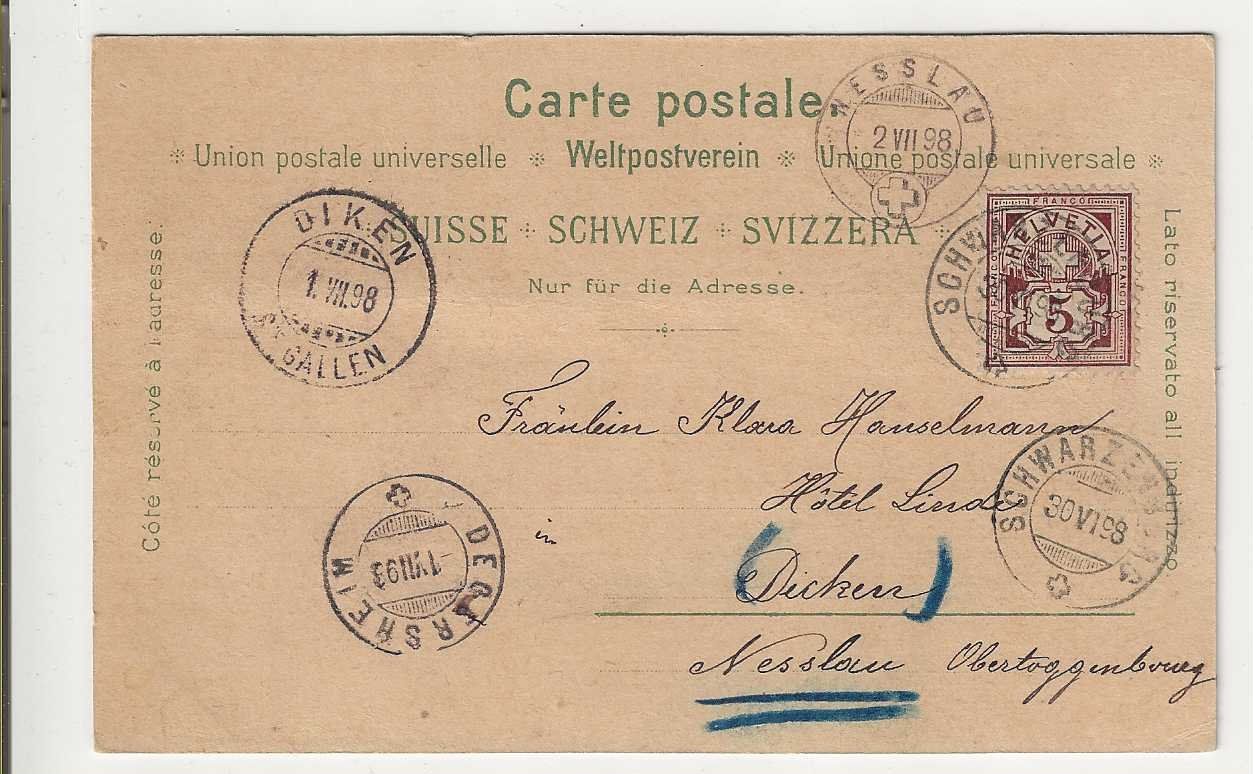 Carte postale.
Union postale universelle * Weltpostverein * Unione postale universale
SUISSE SCHWEIZ SVIZZERA
Nur für die Adresse.
Côté réservé à l'adresse.
Lato riservato all indirizzo
NESSLAU
2 VII 98
DIKEN
1. VII. 98
ST GALLEN
FRANCO
HELVETIA
FRANCO
FRANCO
5
SCHW
Fräulein Klara Hanselmann
Hôtel Linde
in
(Dicken)
Nesslau Obertoggenbourg
SCHWARZENB
30 VI 98
DEGERSHEIM
-1 VII 93